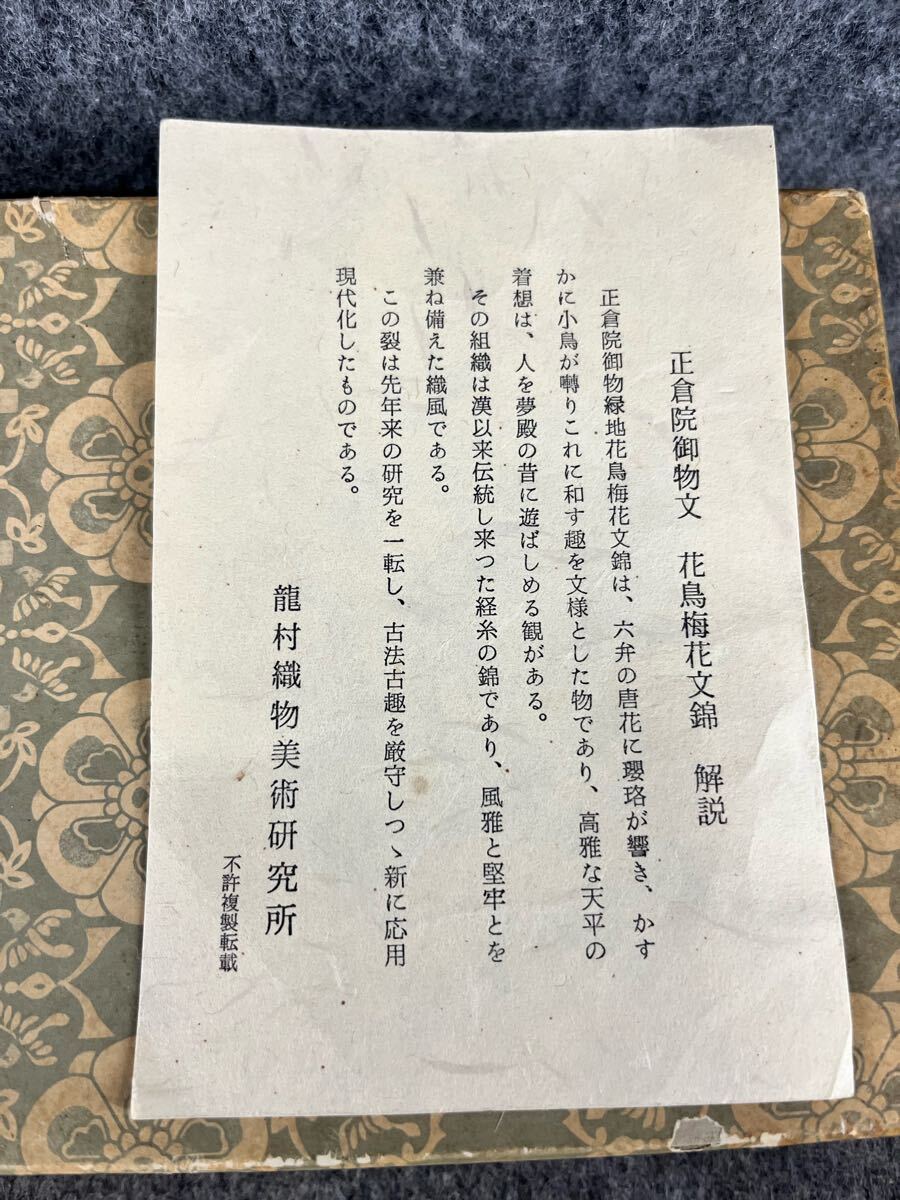 正倉院御物文　花鳥梅花文錦　解説
正倉院御物緑地花鳥梅花文錦は、六弁の唐花に瓔珞が響き、かす
かに小鳥が囀りこれに和す趣を文様とした物であり、高雅な天平の
着想は、人を夢殿の昔に遊ばしめる観がある。
その組織は漢以来伝統し来つた経糸の錦であり、風雅と堅牢とを
兼ね備えた織風である。
この裂は先年来の研究を一転し、古法古趣を厳守しつゝ新に応用
現代化したものである。
龍村織物美術研究所
不許複製転載